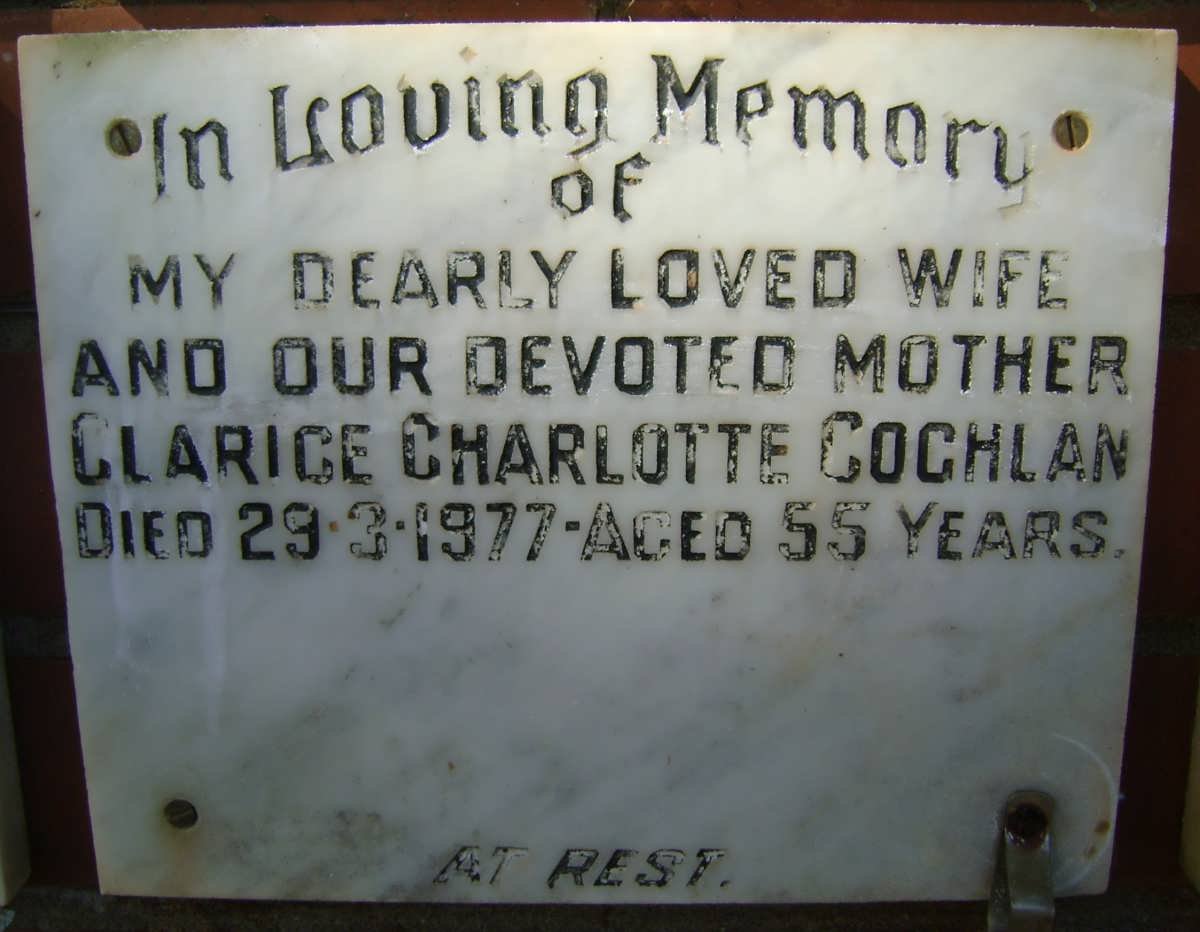 In Loving Memory
of
MY DEARLY LOVED WIFE
AND OUR DEVOTED MOTHER
CLARICE CHARLOTTE COGHLAN
DIED 29·3·1977-AGED 55 YEARS.
AT REST.